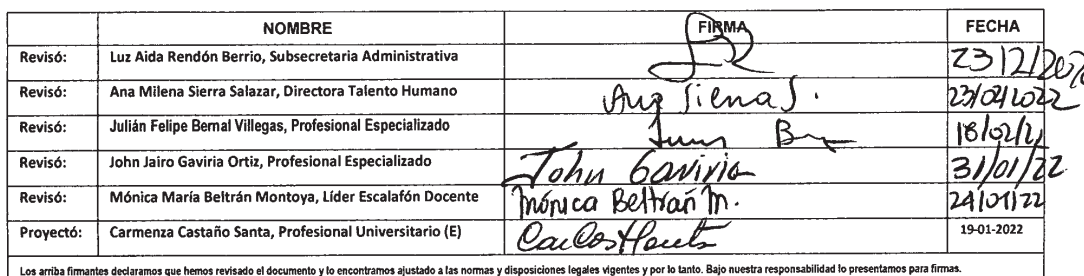 NOMBRE FIRMA FECHA
Revisó: Luz Aida Rendón Berrio, Subsecretaria Administrativa
Revisó: Ana Milena Sierra Salazar, Directora Talento Humano Ana Sierra S.
Revisó: Julián Felipe Bernal Villegas, Profesional Especializado
Revisó: John Jairo Gaviria Ortiz, Profesional Especializado John Gaviria 31/01/22
Revisó: Mónica María Beltrán Montoya, Líder Escalafón Docente Mónica Beltrán M. 24/01/22
Proyectó: Carmenza Castaño Santa, Profesional Universitario (E) 19-01-2022
Los arriba firmantes declaramos que hemos revisado el documento y lo encontramos ajustado a las normas y disposiciones legales vigentes y por lo tanto. Bajo nuestra responsabilidad lo presentamos para firmas.